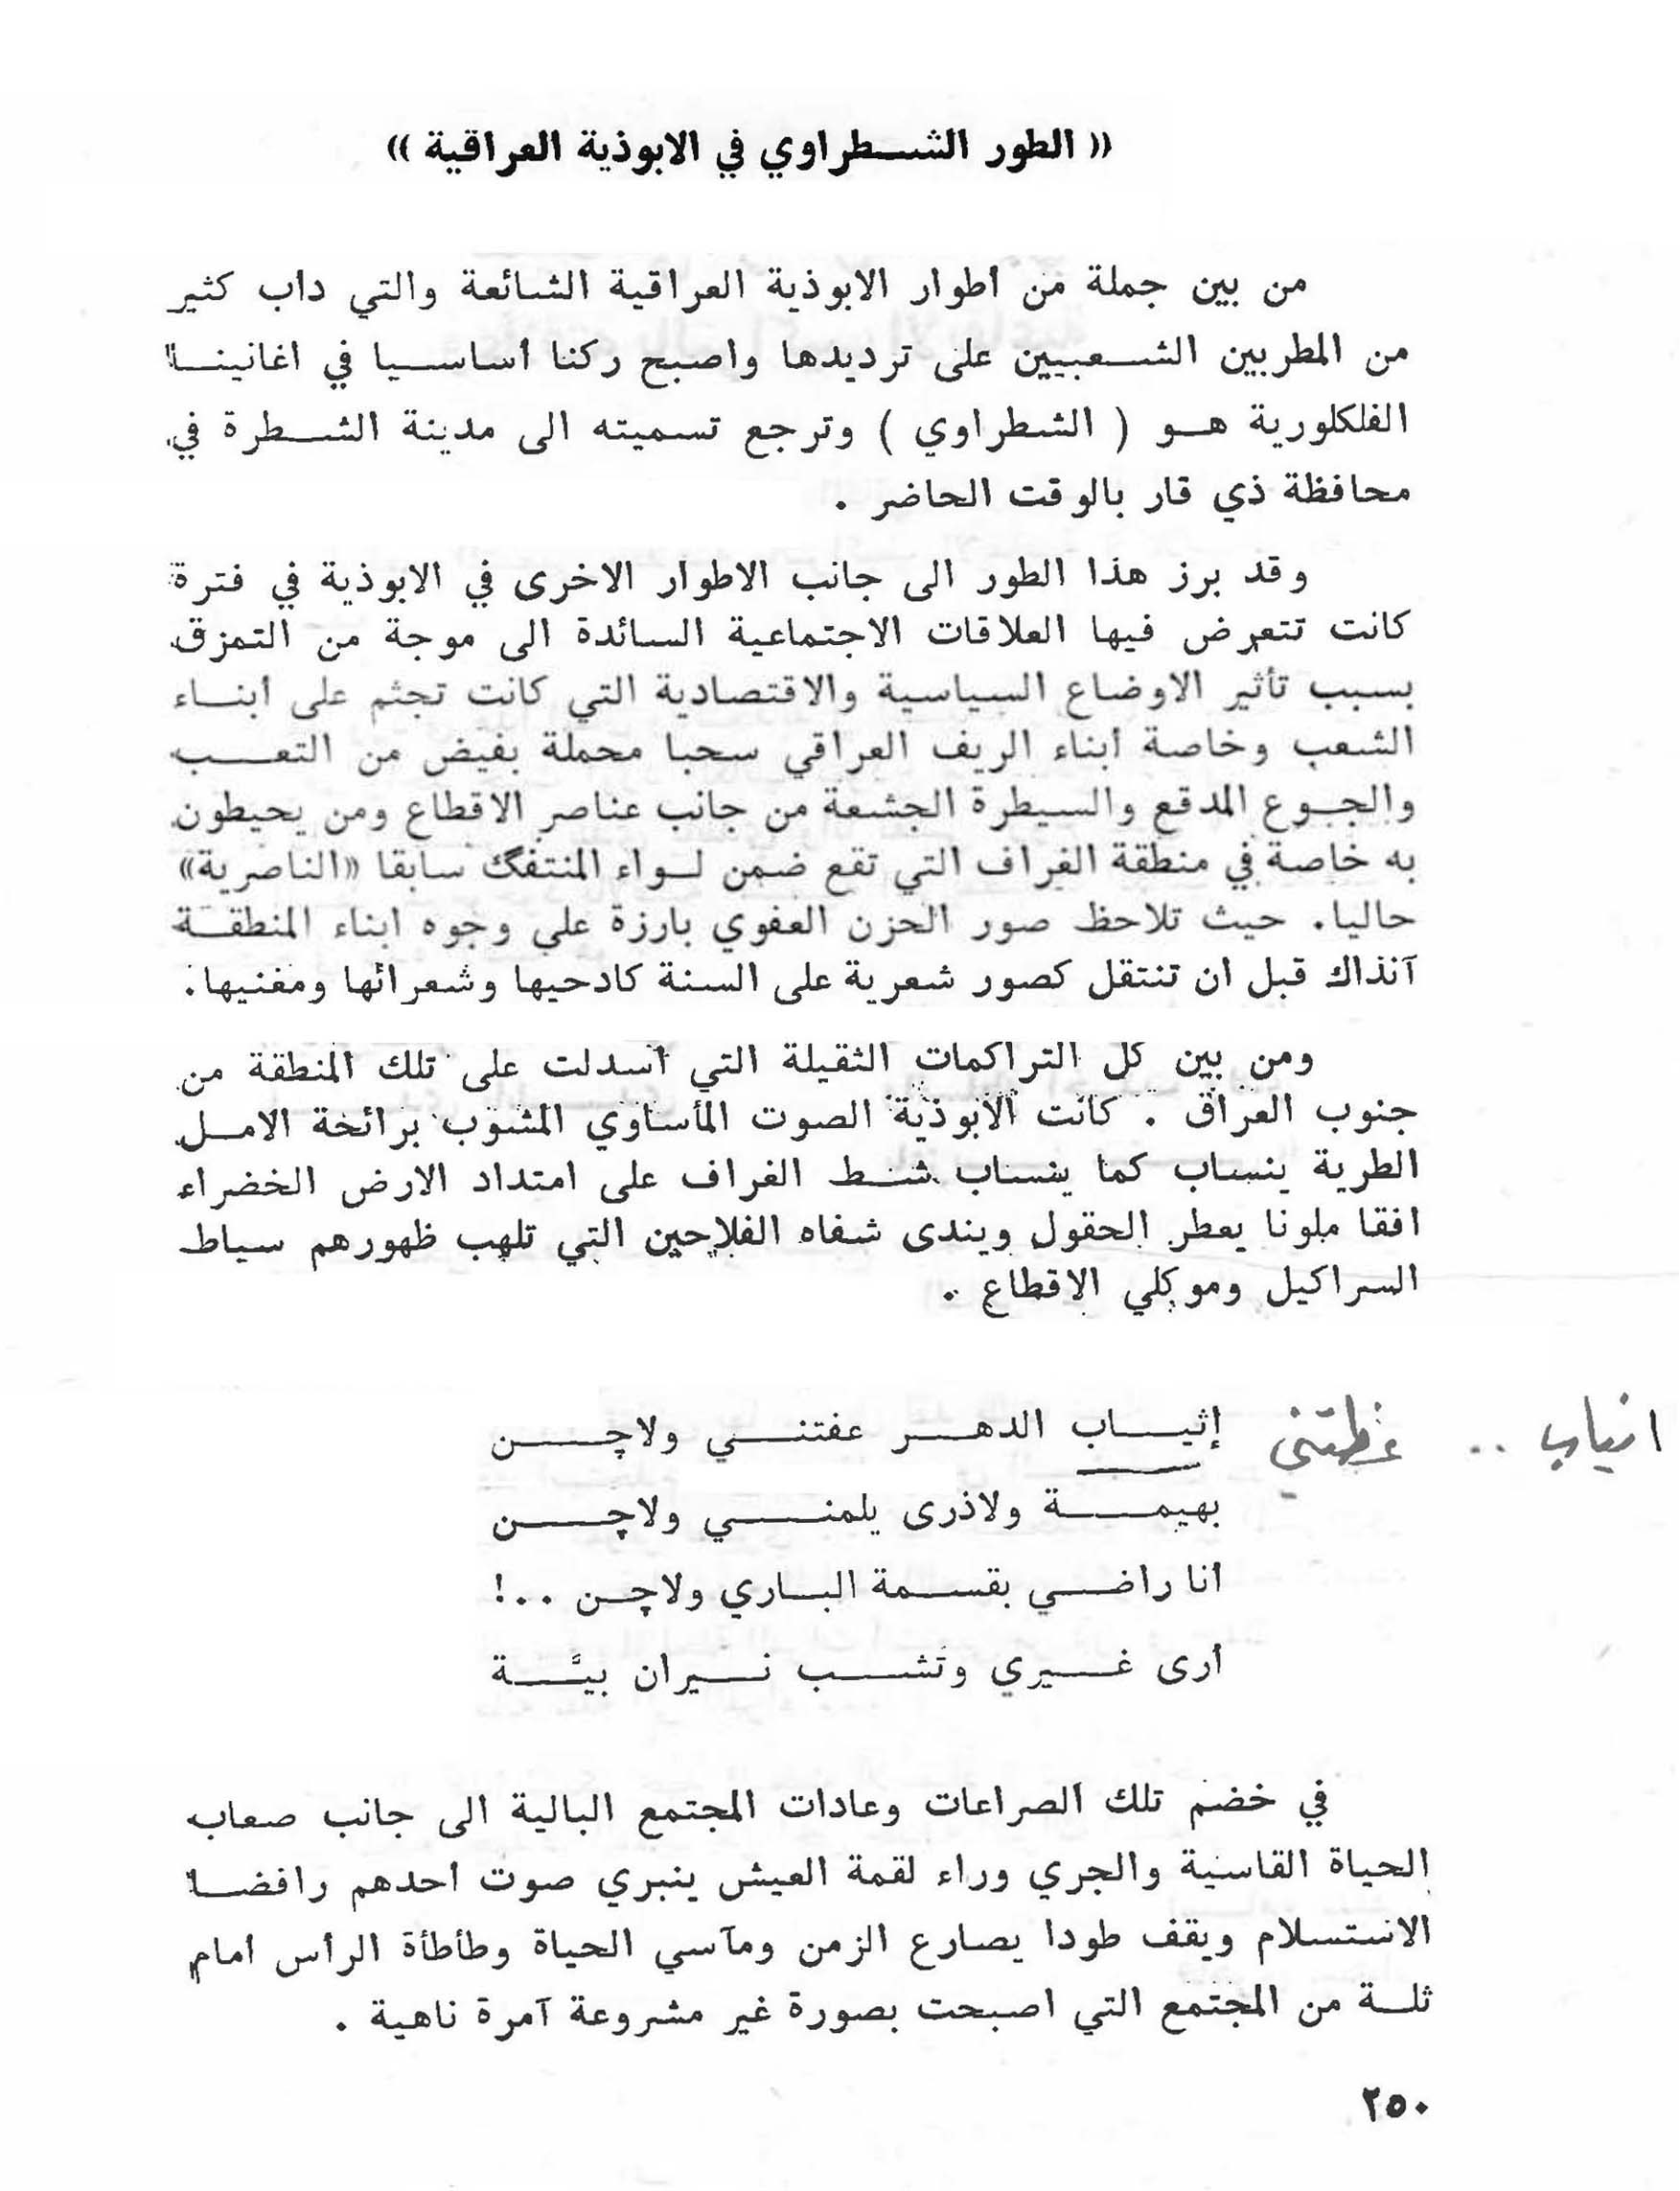 (( الطور الشطراوي في الابوذية العراقية ))
من بين جملة من أطوار الابوذية العراقية الشائعة والتي داب كثير
من المطربين الشعبيين على ترديدها واصبح ركنا أساسيا في اغانينا
الفلكلورية هو ( الشطراوي ) وترجع تسميته الى مدينة الشطرة في
محافظة ذي قار بالوقت الحاضر .
وقد برز هذا الطور الى جانب الاطوار الاخرى في الابوذية في فترة
كانت تتعرض فيها العلاقات الاجتماعية السائدة الى موجة من التمزق
بسبب تأثير الاوضاع السياسية والاقتصادية التي كانت تجثم على أبناء
الشعب وخاصة أبناء الريف العراقي سحبا محملة بفيض من التعب
والجوع المدقع والسيطرة الجشعة من جانب عناصر الاقطاع ومن يحيطون
به خاصة في منطقة الغراف التي تقع ضمن لواء المنتفگ سابقا «الناصرية»
حاليا. حيث تلاحظ صور الحزن العفوي بارزة على وجوه ابناء المنطقة
آنذاك قبل ان تنتقل كصور شعرية على السنة كادحيها وشعرائها ومغنيها.
ومن بين كل التراكمات الثقيلة التي أسدلت على تلك المنطقة من
جنوب العراق . كانت الابوذية الصوت المأساوي المشوب برائحة الامل
الطرية ينساب كما ينساب شط الغراف على امتداد الارض الخضراء
افقا ملونا يعطر الحقول ويندى شفاه الفلاحين التي تلهب ظهورهم سياط
السراكيل وموكلي الاقطاع .
إثياب الدهر عفتني ولاچن
انياب .. عظتني
بهيمة ولاذرى يلمني ولاچن
انا راضي بقسمة الباري ولاچن ..!
أرى غيري وتشب نيران بيَّة
في خضم تلك الصراعات وعادات المجتمع البالية الى جانب صعاب
الحياة القاسية والجري وراء لقمة العيش ينبري صوت احدهم رافضا
الاستسلام ويقف طودا يصارع الزمن ومآسي الحياة وطأطأة الرأس امام
ثلة من المجتمع التي اصبحت بصورة غير مشروعة آمرة ناهية .
٢٥٠